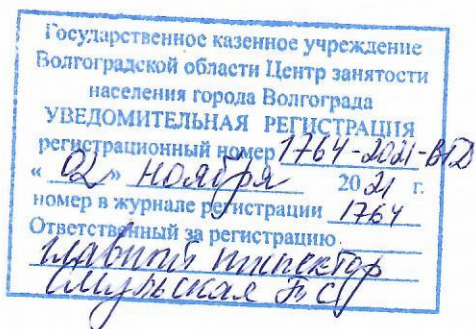 Государственное казенное учреждение
Волгоградской области Центр занятости
населения города Волгограда
УВЕДОМИТЕЛЬНАЯ РЕГИСТРАЦИЯ
регистрационный номер 1764-2021-ВГД
« 02 » ноября 2021 г.
номер в журнале регистрации 1764
Ответственный за регистрацию
главный инспектор